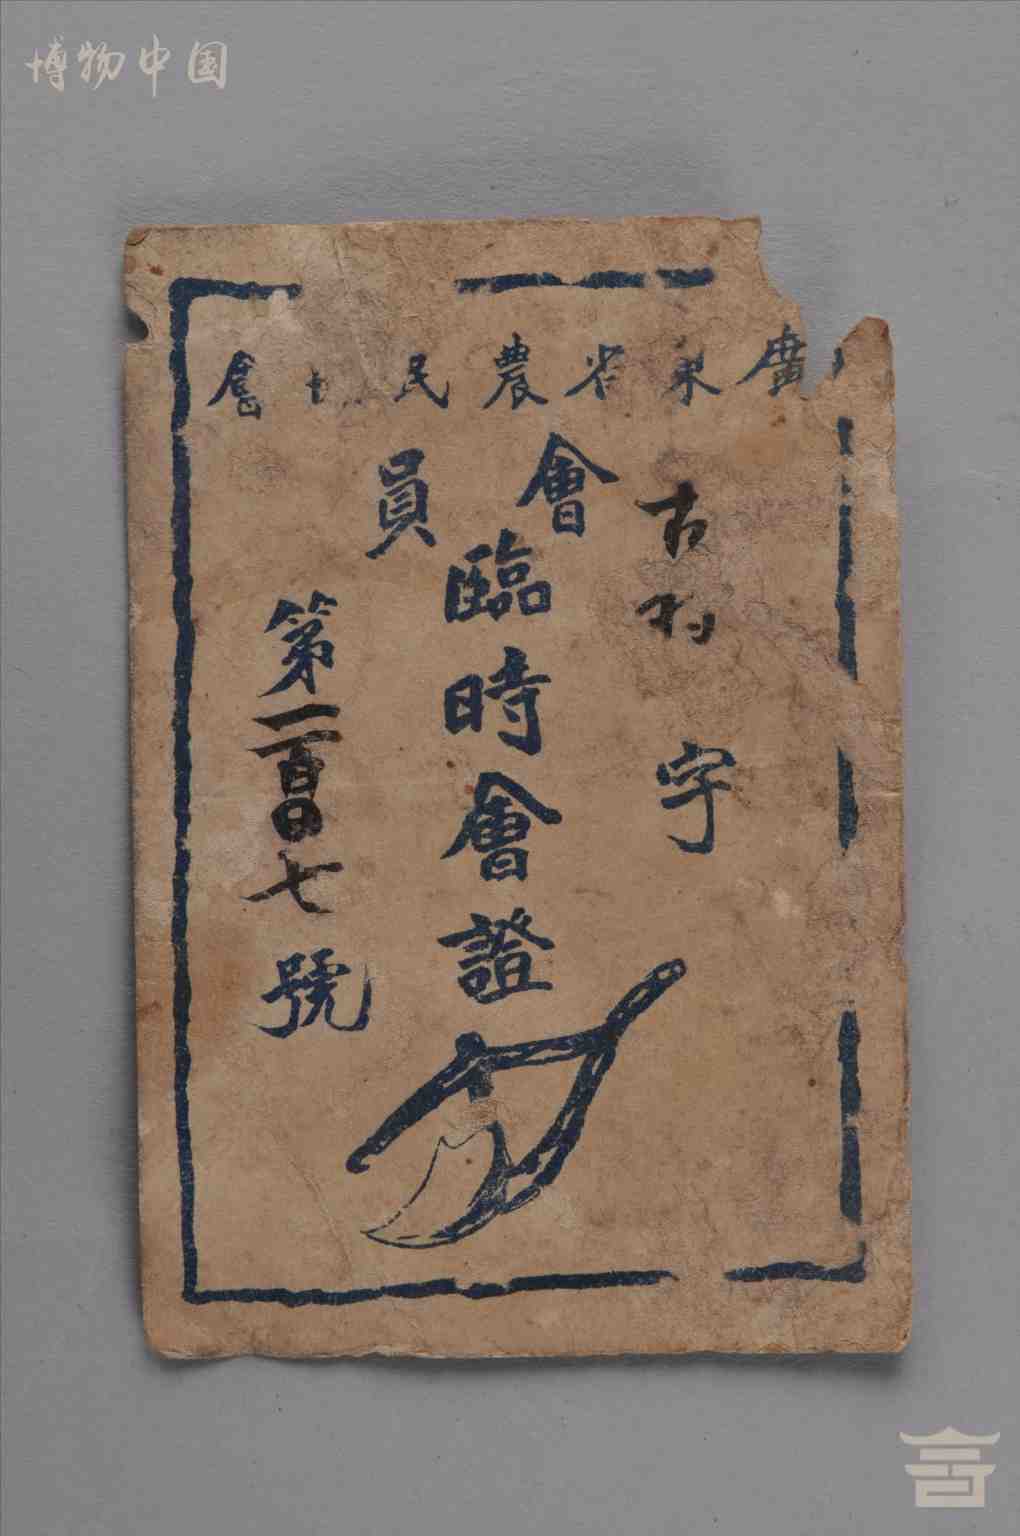 博物中国
廣東省農民協會
古村字
會員
臨時會證
第一百〇七號